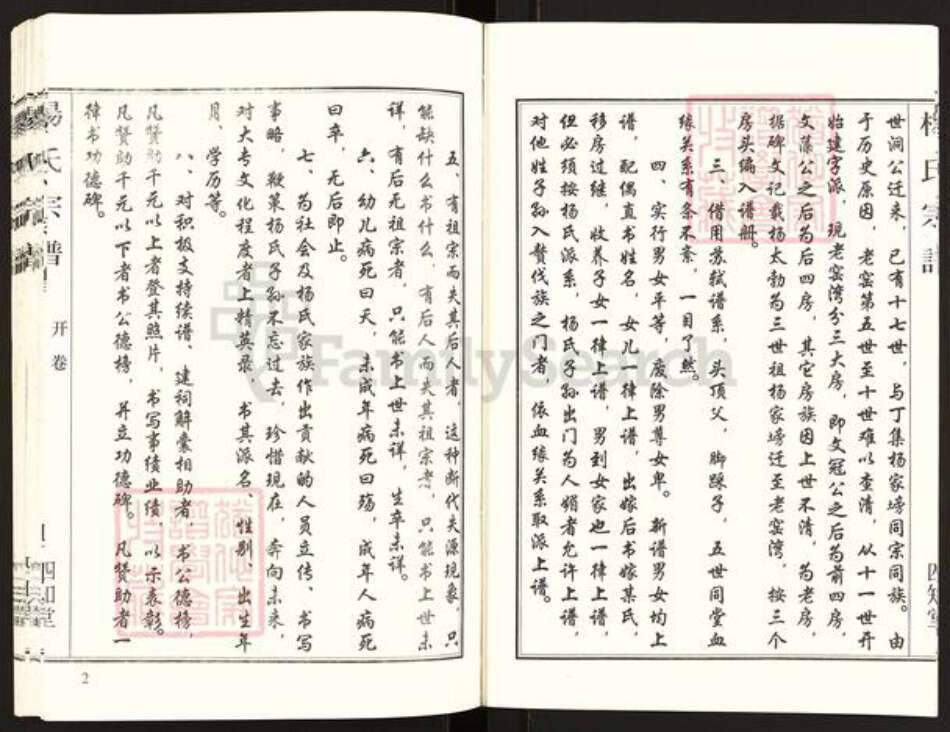 杨氏宗谱
世洞公迁来，已有十七世，与丁集杨家塝同宗同族。由
于历史原因，老窑第五世至十世难以查清，从十一世开
始建字派，现老窑湾分三大房，即文冠公之后为前四房，
文藻公之后为后四房，其它房族因上世不清，为老房，
据碑文记载杨太勃为三世祖杨家塝迁至老窑湾，按三个
房头编入谱册。
三、借用苏轼谱系，头顶父，脚踩子，五世同堂血
缘关系有条不紊，一目了然。
四、实行男女平等，废除男尊女卑。新谱男女均上
谱，配偶直书姓名，女儿一律上谱，出嫁后书嫁某氏，
移房过继，收养子女一律上谱，男到女家也一律上谱，
但必须按杨氏派系，杨氏子孙出门为人婿者允许上谱，
对他姓子孙入赘伐族之门者，依血缘关系取派上谱。
四知堂
五、有祖宗而失其后人者，这种断代失源现象，只
能缺什么书什么，有后人而失其祖宗者，只能书上世未
详，有后无祖宗者，只能书上世未详，生卒未详。
六、幼儿病死曰夭，未成年病死曰殇，成年人病死
曰卒，无后即止。
七、为社会及杨氏家族作出贡献的人员立传、书写
事略，鞭策杨氏子孙不忘过去，珍惜现在，奔向未来，
对大专文化程度者上精英录，书其派名、性别、出生年
月、学历等。
八、对积极支持续谱、建祠解囊相助者，书公德榜，
凡赞助千元以上者登其照片，书写事绩业绩，以示表彰。
凡赞助千元以下者书公德榜，并立功德碑。凡赞助者一
律书功德碑。
杨氏宗谱
开卷
四知堂
2
FamilySearch